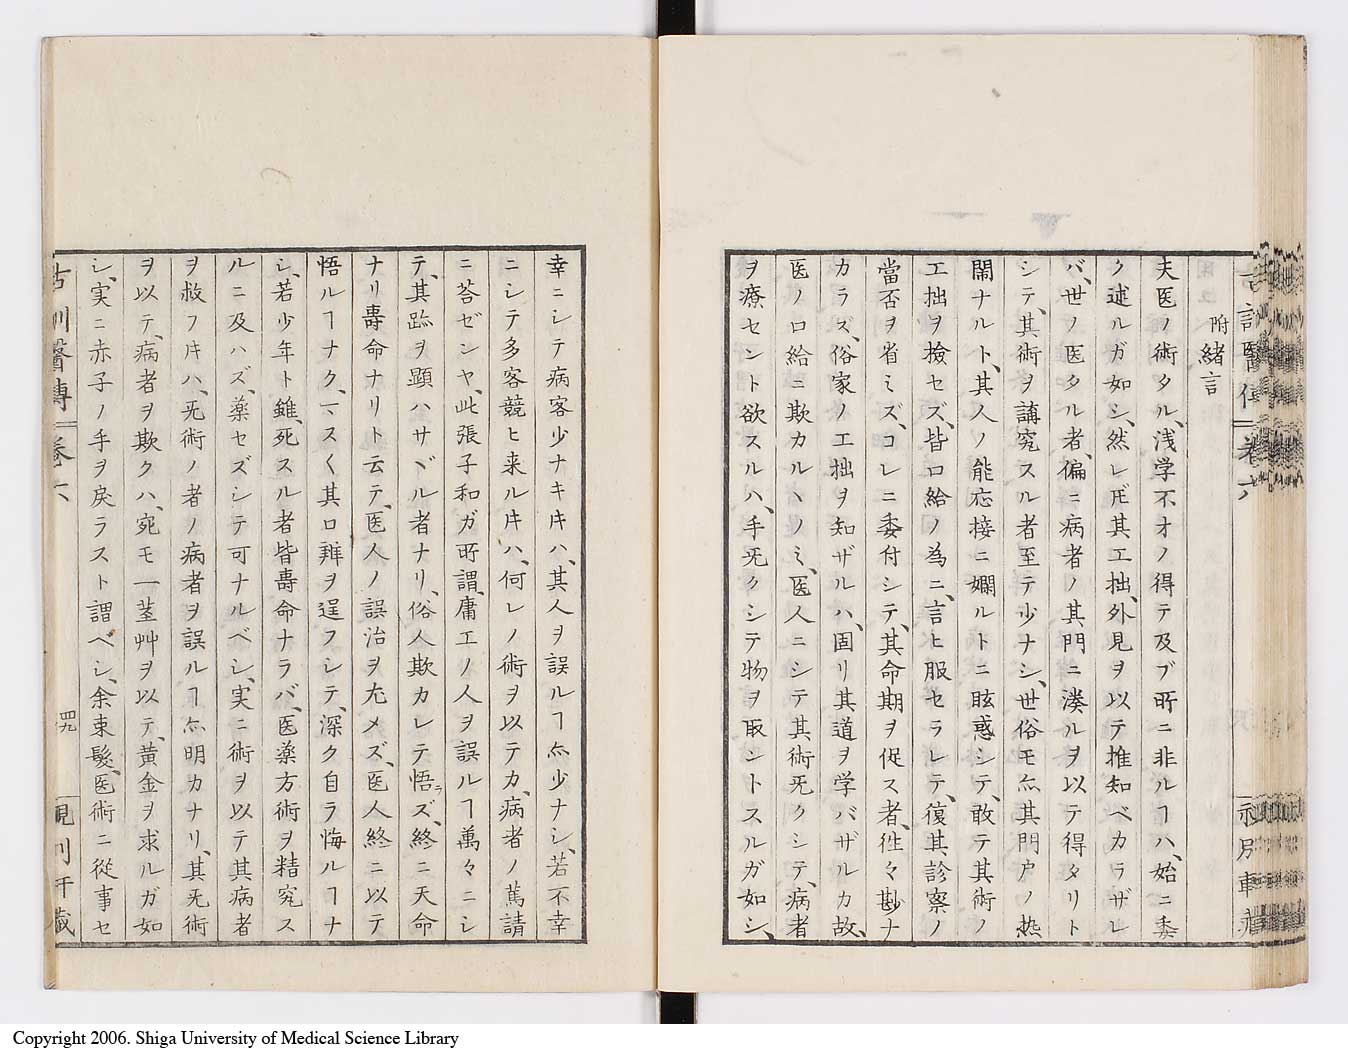 附緒言
夫医ノ術タル、浅学不才ノ得テ及ブ所ニ非ルヿハ、始ニ委
ク述ルガ如シ、然レ𪜈其工拙、外見ヲ以テ推知ベカラザレ
バ、世ノ医タル者、偏ニ病者ノ其門ニ湊ルヲ以テ得タリト
シテ、其術ヲ講究スル者至テ少ナシ、世俗モ亦其門戸ノ熱
閙ナルト、其人ノ能応接ニ嫻ルトニ眩惑シテ、敢テ其術ノ
工拙ヲ検セズ、皆口給ノ為ニ、言ヒ服セラレテ、復其診察ノ
當否ヲ省ミズ、コレニ委付シテ、其命期ヲ促ス者、徃々尠ナ
カラズ、俗家ノ工拙ヲ知ザルハ、固リ其道ヲ学バザルカ故、
医ノ口給ニ欺カルヽノミ、医人ニシテ其術旡クシテ、病者
ヲ療セント欲スルハ、手旡クシテ物ヲ取ントスルガ如シ、
幸ニシテ病客少ナキ𬼀ハ、其人ヲ誤ルヿ亦少ナシ、若不幸
ニシテ多客競ヒ来ル𬼀ハ、何レノ術ヲ以テカ、病者ノ篤請
ニ荅ゼンヤ、此張子和ガ所謂、庸工ノ人ヲ誤ルヿ萬々ニシ
テ、其跡ヲ顕ハサヾル者ナリ、俗人欺カレテ悟ラズ、終ニ天命
ナリ壽命ナリト云テ、医人ノ誤治ヲ尤メズ、医人終ニ以テ
悟ルヿナク、マスく其口辨ヲ逞フシテ、深ク自ラ悔ルヿナ
シ、若少年ト雖、死スル者皆壽命ナラバ、医薬方術ヲ精究ス
ルニ及ハズ、薬セズシテ可ナルベシ、実ニ術ヲ以テ其病者
ヲ救フ𬼀ハ、旡術ノ者ノ病者ヲ誤ルヿ亦明カナリ、其旡術
ヲ以テ、病者ヲ欺クハ、宛モ一茎艸ヲ以テ、黄金ヲ求ルガ如
シ、実ニ赤子ノ手ヲ戻ラスト謂ベシ、余束髮、医術ニ從事セ
古訓醫傳 卷六 四九